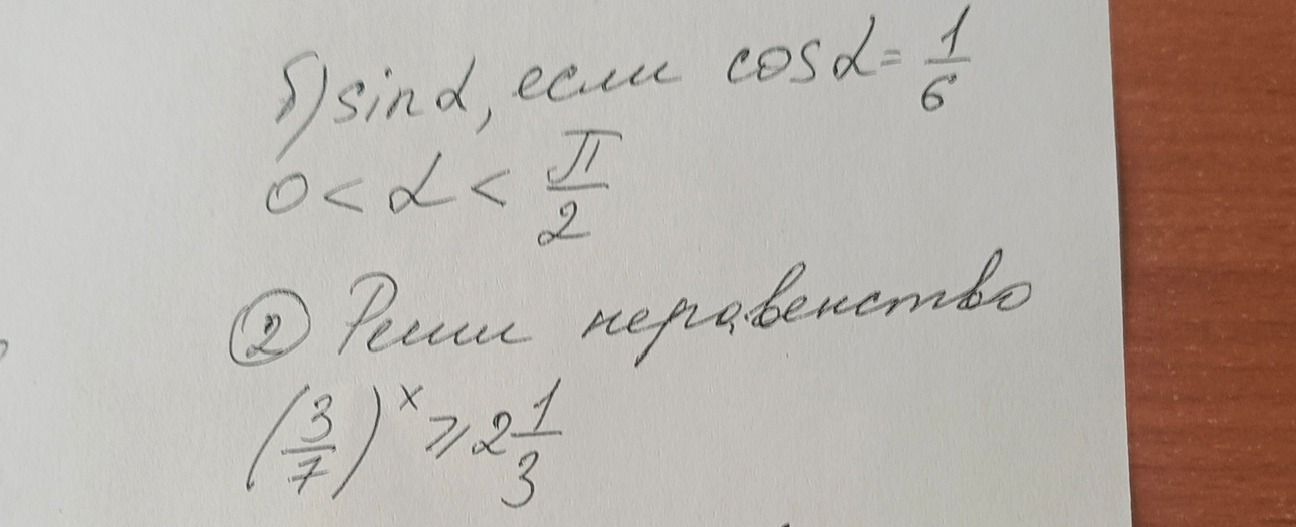 б) sin α, если cos α = 1/6
0 < α < π/2
② Реши неравенство
(3/7)^x ⩾ 2 1/3